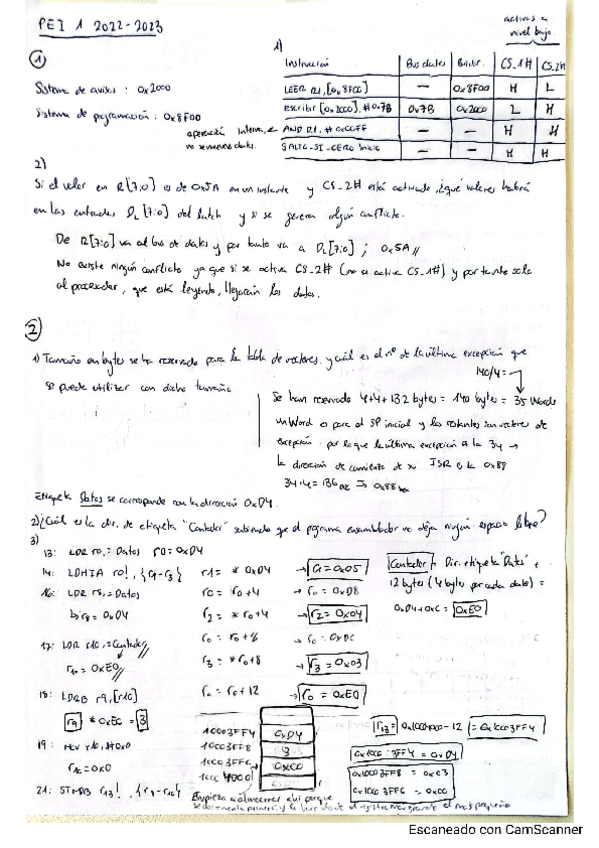 PEI 1 2022-2023
activas a
nivel bajo
①
1)
Instrucción Bus datos CS_1H CS_2H
Sistema de avisos : 0x2000
LEER R1, [0x8F00] — 0x8F00 H L
Sistema de programación : 0x8F00
Escribir [0x2000], #0x7B 0x7B 0x2000 L H
operación interna, no
AND R1, #0x00FF — — H H
SALTO_SI_CERO Inicio — — H H
2)
Si el valor en R[7:0] es de 0x5A en un instante y CS_2H está activado ¿qué valores habrá
en las entradas DL[7:0] del latch y si se genera algún conflicto.
De R[7:0] va al bus de datos y por tanto va a DL[7:0] ; 0x5A //
No existe ningún conflicto ya que si se activa CS_2H (no se activa CS_1H) y por tanto solo
al procesador, que está leyendo, llegarán los datos.
②
1) Tamaño en bytes se ha reservado para la tabla de vectores. y cuál es el nº de la última excepción que
se puede utilizar con dicho tamaño
140/4=
Se han reservado 4+4+132 bytes = 140 bytes = 35 Words
un Word es para el SP inicial y los restantes son vectores de
excepción. por lo que la última excepción es la 34 →
la dirección de comienzo de su ISR es la 0x88
34·4=136 ⇒ 0x88
Etiqueta Datos se corresponde con la dirección 0xD4.
2) ¿Cuál es la dir. de etiqueta "Contador" sabiendo que el programa ensamblador no deja ningún espacio libre?
3)
13: LDR r0, = Datos r0=0xD4
Contador = Dir. etiqueta "Datos" +
14: LDMIA r0!, {r1-r3} r1= * 0xD4 → r1=0x05
12 bytes (4 byte por cada dato) =
16: LDR r8, = Datos r0= r0+4 → r0= 0xD8
r8= 0xD4 r2= * r0+4 → r2=0x04
0xD4+0xC = 0xE0
17: LDR r10, =Contador r0= r0+8 → r0= 0xDC
r10= 0xE0 // r3= * r0+8 → r3=0x03
18: LDRB r9, [r10] r0= r0+12 → r0= 0xE0
r9 * 0xE0 = 3
10003FF4 0xD4
19: MOV r10, #0x0 10003FF8 3
r10=0x0 10003FFC 0x00
10004000
0x1000 3FF4 = 0xD4
0x1000 3FF8 = 0x03
0x1000 3FFC = 0x00
21: STMDB r13!, {r8-r10} Empieza a almacenar ahí porque
Escaneado con CamScanner